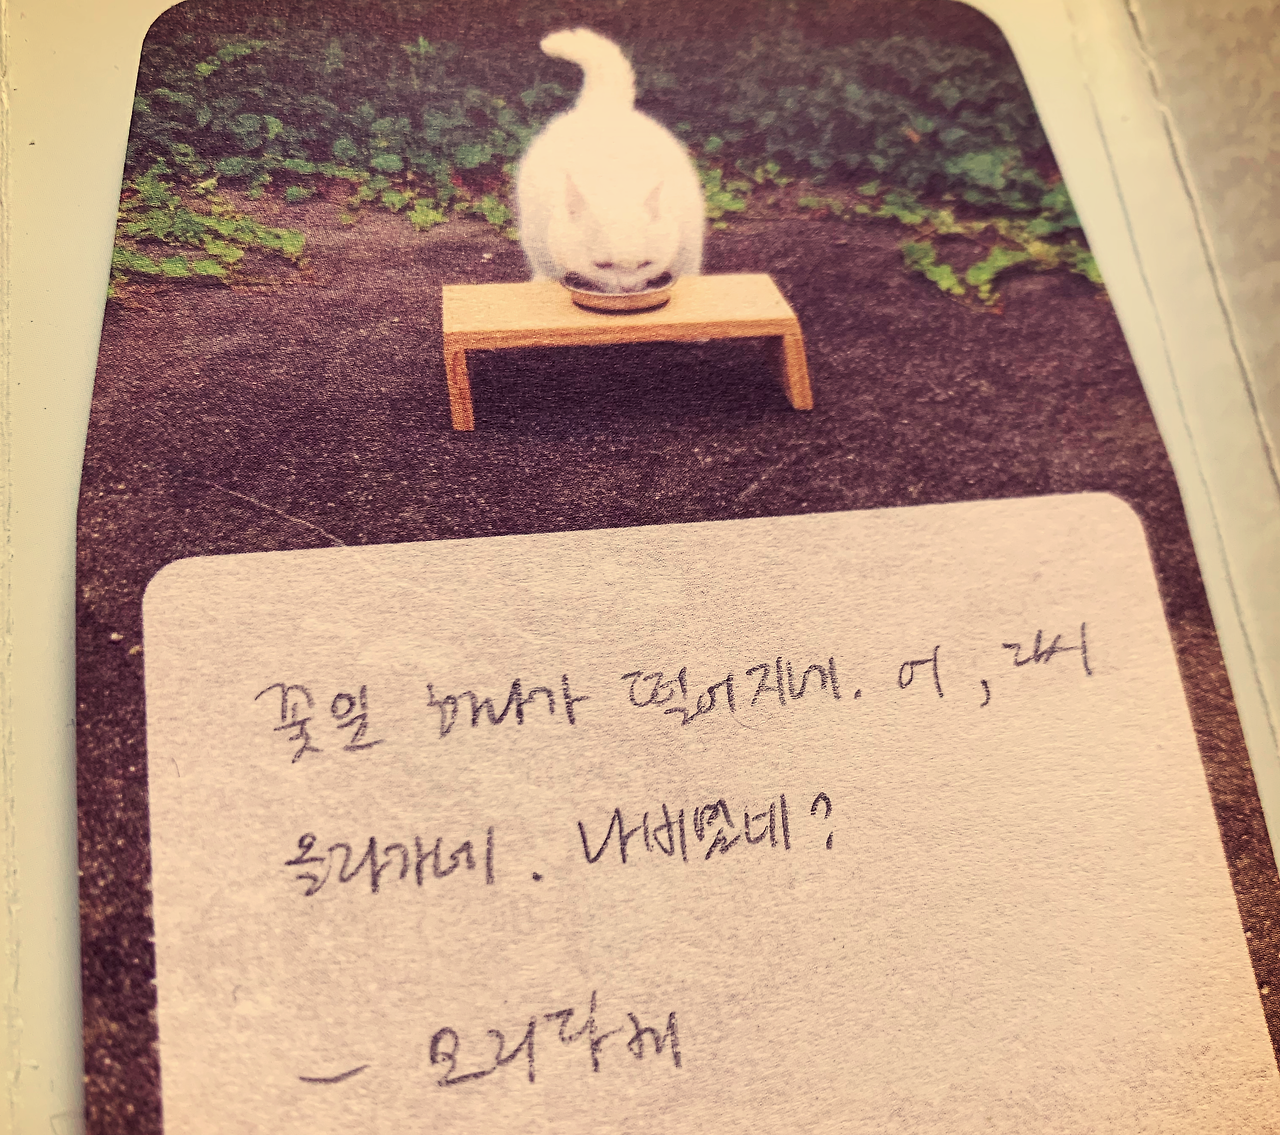 꽃잎 하나가 떨어지네. 어, 다시
올라가네. 나비였네?
- 모리다케